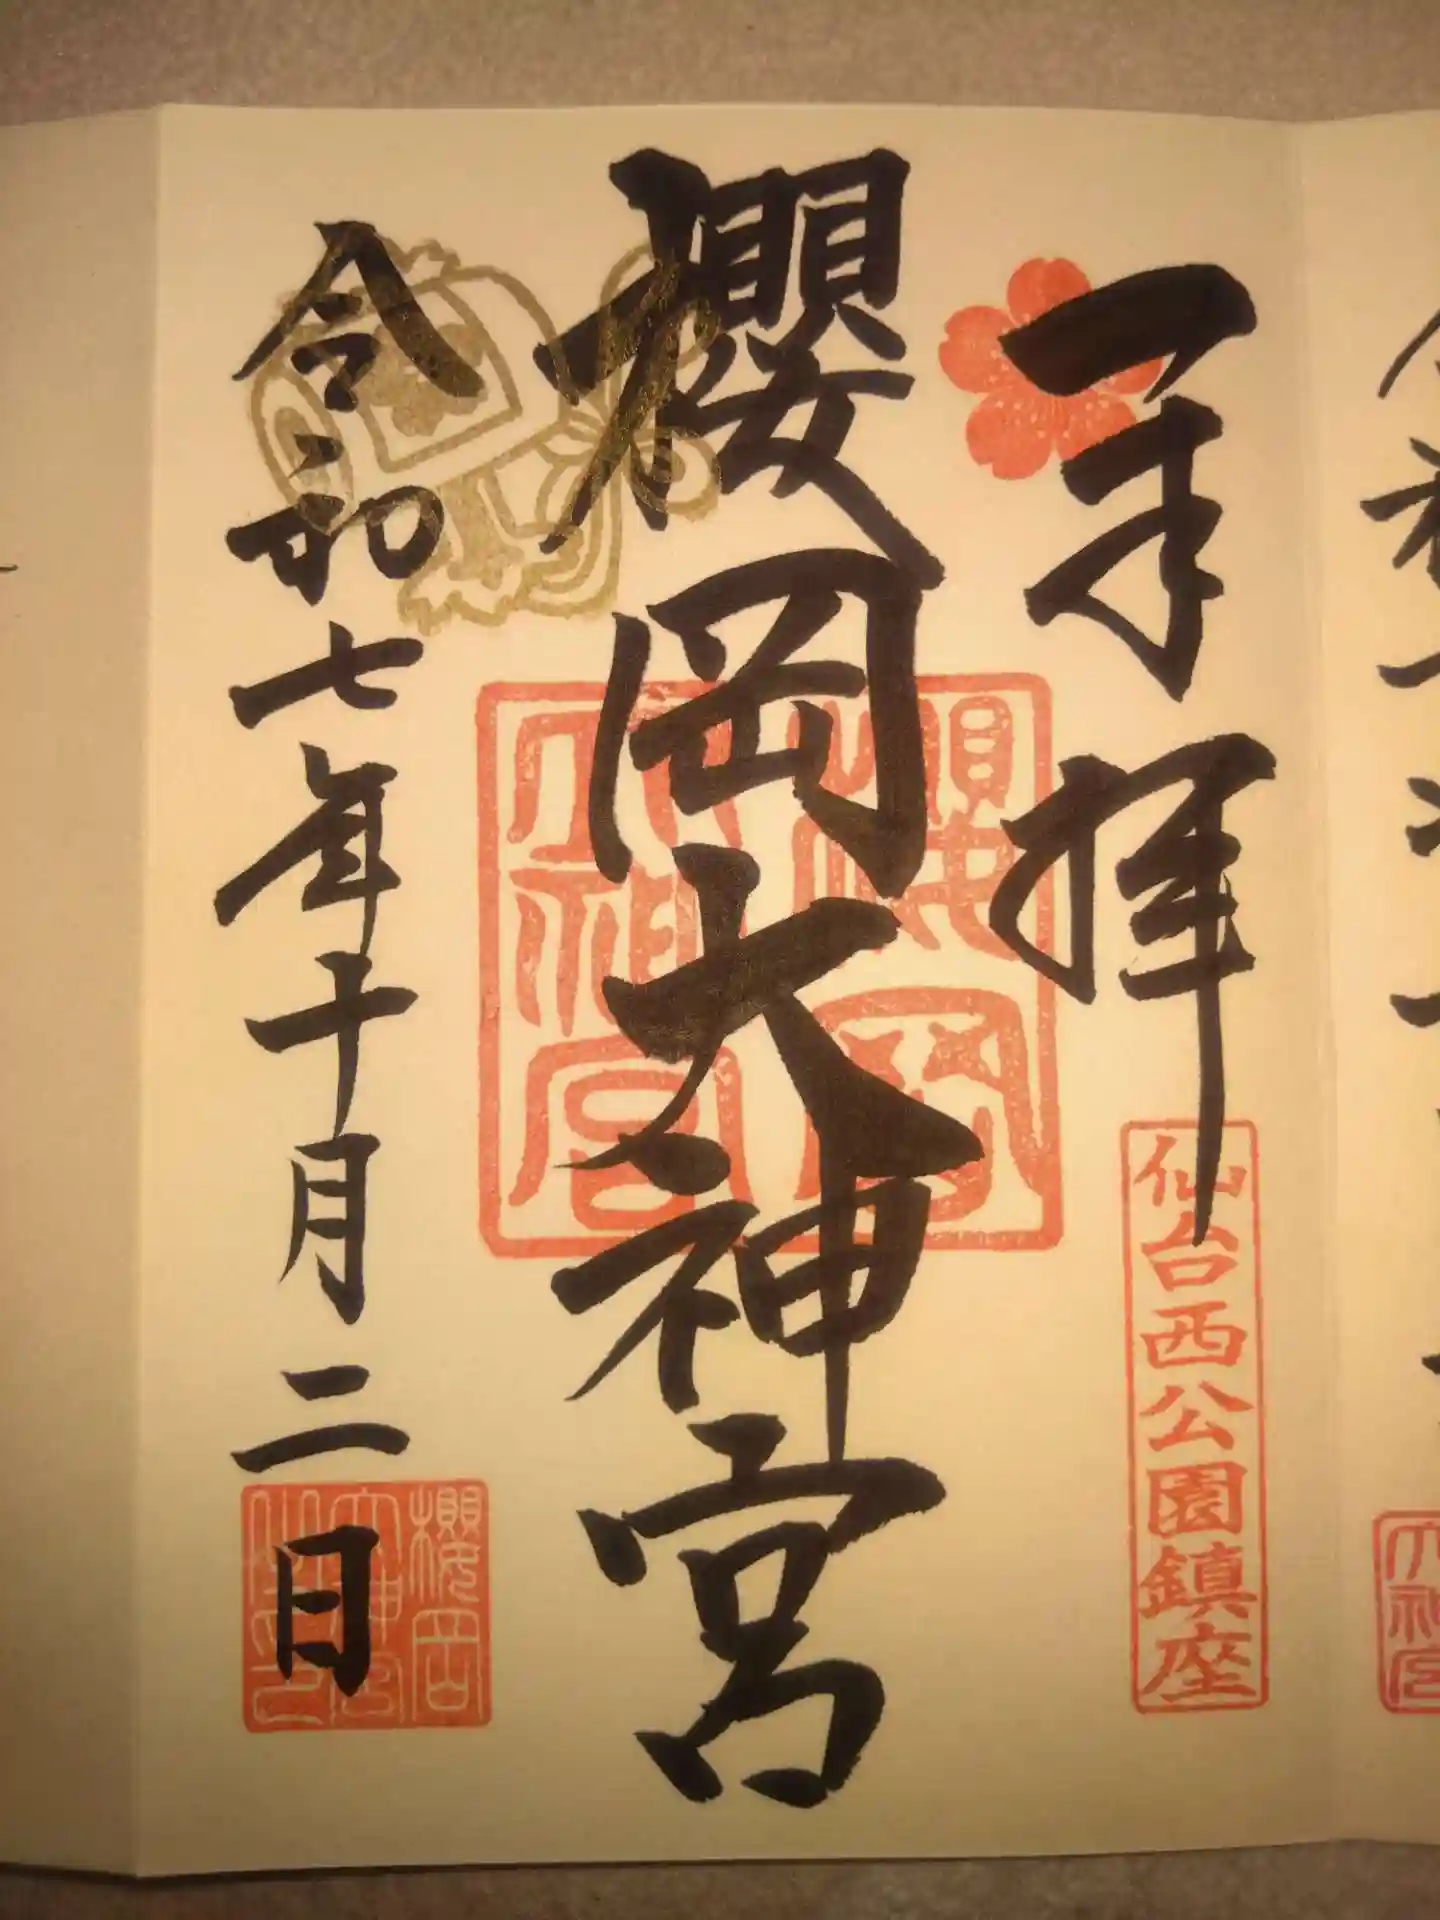 奉拝
仙台西公園鎮座
櫻岡大神宮
櫻岡
大神宮
令和七年十月二日
櫻岡
大神宮
大神宮